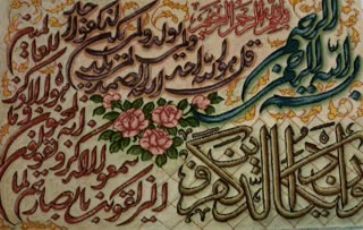 بسم الله الرحمن الرحيم
بسم الله الرحمن الرحيم
قل هو الله احد الله الصمد
لم يلد ولم يولد ولم يكن
له كفوا احد
وان يكاد الذين كفروا
ليزلقونك بابصارهم لما
سمعوا الذكر ويقولون
انه لمجنون وما
هو الا ذكر
للعالمين